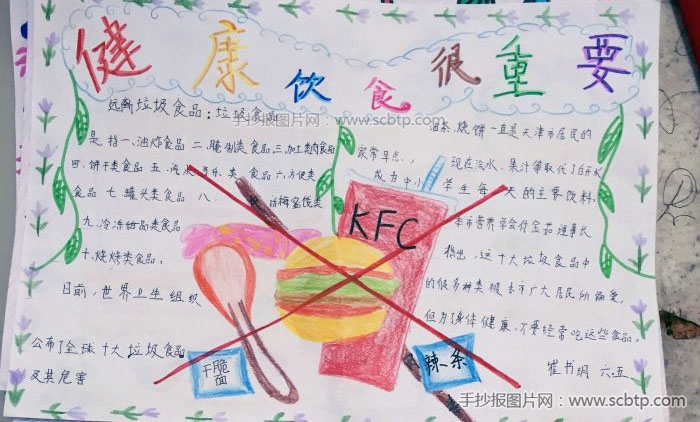 健康饮食很重要
远离垃圾食品：垃圾食品
是指一、油炸食品 二、腌制类食品 三、加工类肉食品
四、饼干类食品 五、汽水可乐类食品 六、方便类
食品 七、罐头类食品 八、话梅蜜饯类
九、冷冻甜品类食品
十、烧烤类食品；
日前，世界卫生组织
公布了全球十大垃圾食品
及其危害
油条、烧饼一直是天津市居民的
家常早点，
现在汽水、果汁等取代了白开水
成为中小学生每天的主要饮料，
本市营养学会付金茹理事长
指出，这十大垃圾食品中
的很多种类被本市广大居民所偏爱，
但为了身体健康，不要经常吃这些食品。
崔书玥 六.五
KFC
干脆面
辣条
手抄报图片网：www.scbtp.com
手抄报图片网：www.scbtp.com